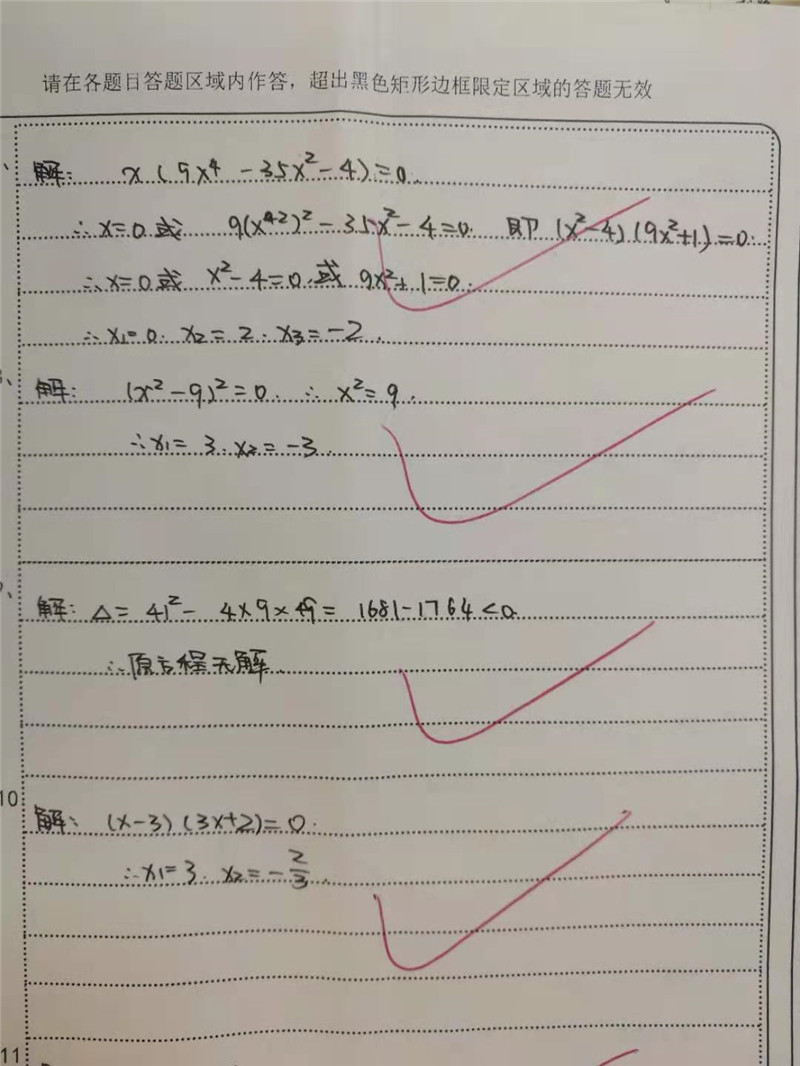 请在各题目答题区域内作答，超出黑色矩形边框限定区域的答题无效
解: x(9x⁴-35x²-4)=0.
∴x=0.或 9(x²)²-35x²-4=0. 即 (x²-4)(9x²+1)=0.
∴x=0或 x²-4=0.或 9x²+1=0.
∴x₁=0. x₂=2. x₃=-2.
解: (x²-9)²=0. ∴x²=9.
∴x₁=3. x₂=-3.
解: △=41²-4×9×49=1681-1764<0.
∴原方程无解.
10
解: (x-3)(3x+2)=0.
∴x₁=3. x₂=-2/3.
11